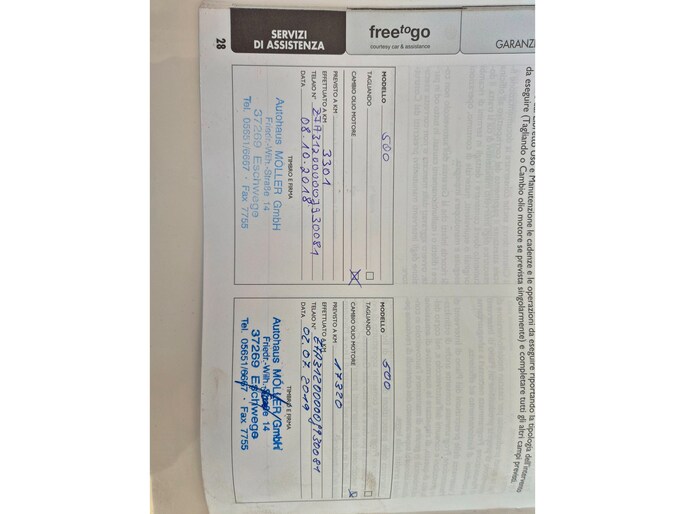 28
SERVIZI
DI ASSISTENZA
freetogo
courtesy car & assistance
GARANZI
Uso e Manutenzione le cadenze e le operazioni da eseguire riportando la tipologia dell'intervento
da eseguire (Tagliando o Cambio olio motore se prevista singolarmente) e completare tutti gli altri campi previsti.
MODELLO 500
TAGLIANDO
CAMBIO OLIO MOTORE
PREVISTO A KM
EFFETTUATO A KM 3301
TELAIO N°
DATA 08.10.2018
TIMBRO E FIRMA
Autohaus MÖLLER GmbH
Friedr.-Wilh.-Straße 14
37269 Eschwege
Tel. 05651/6667 · Fax 7755
MODELLO 500
TAGLIANDO
CAMBIO OLIO MOTORE
PREVISTO A KM
EFFETTUATO A KM 17320
TELAIO N°
DATA 02.07.2019
TIMBRO E FIRMA
Autohaus MÖLLER GmbH
Friedr.-Wilh.-Straße 14
37269 Eschwege
Tel. 05651/6667 · Fax 7755